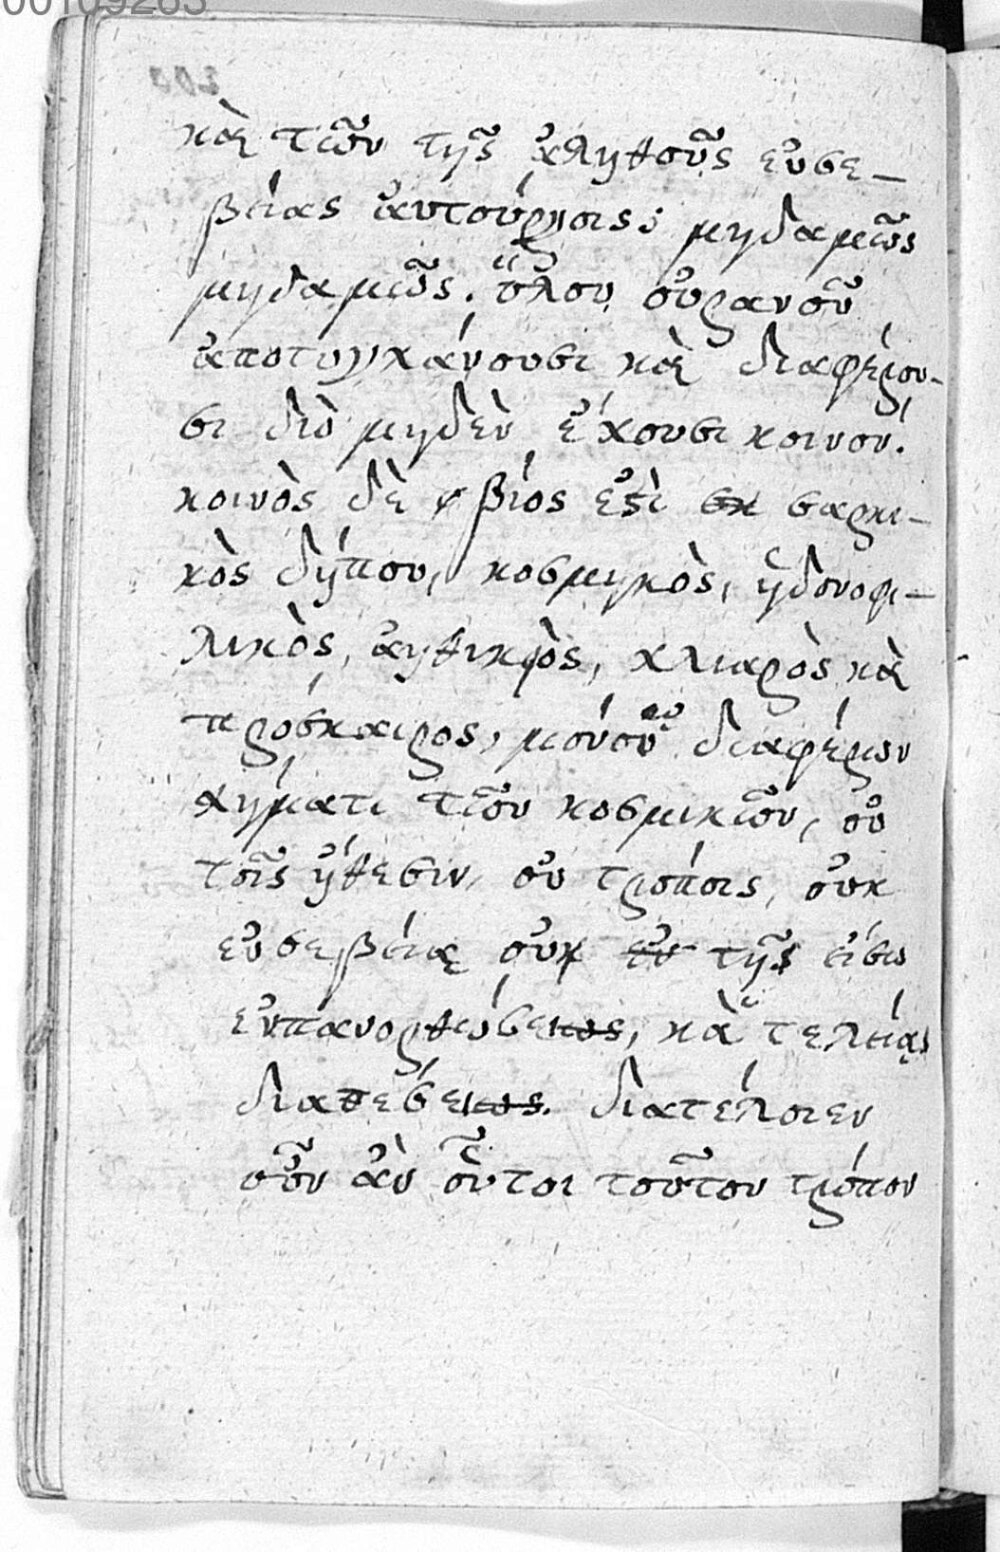 καὶ τῶν τῆς ἀληθοῦς εὐσε-
βείας αὐτουργοις; μηδαμῶς
μηδαμῶς. ὅλου οὐρανοῦ
ἀποτυγχάνουσι καὶ διαφέρου-
σι διὸ μηδὲν ἔχουσι κοινόν.
κοινὸς δὲ βίος ἐστὶ σαρκι-
κὸς δήπου, κοσμηκὸς, ἡδονοφι-
λικὸς, ἀηθικὸς, χλιαρὸς καὶ
πρόσκαιρος, μόνου διαφέρων
χήματι τῶν κοσμικῶν, οὐ
τοῖς ἤθεσιν, οὐ τρόποις, οὐκ
εὐσεβείᾳ οὐκ τῆς εἴσω
ἐνπανορθώσεως, καὶ τελείας
διαθέσεως. διατελοῖεν
οὖν ἂν οὗτοι τοῦτον τρόπον